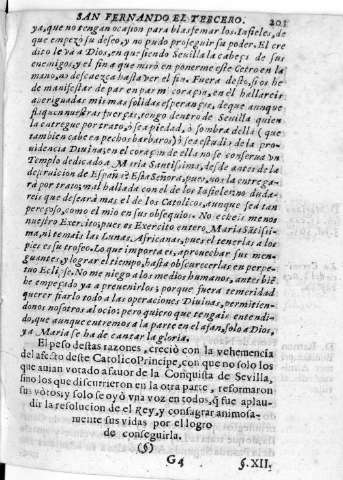 SAN FERNANDO EL TERCERO. 201
ya, que no tengan ocasion para blasfemar los Infieles, de
que empezò su deseo, y no pudo proseguir su poder. El cre
dito le va a Dios, en que siendo Sevilla la cabeça de sus
enemigos, y el fin a que mirò en ponerme este Cetro en la
mano, no descaezca hasta ver el fin. Fuera desto, si os he
de manifestar de par en par mi coraçon, en el hallareis
averiguadas mis mas solidas esperanças, de que aunque
flaqueen nuestras fuerças, tengo dentro de Sevilla quien
la entregue por trato, ò sea piedad, ò sombra della (que
tambien cabe en pechos barbaros) ò sea estudio de la pro-
videncia Divina; en el coraçon de ella no se conserva vn
Templo dedicado a Maria Santissima, desde antes de la
destruicion de España? Esta Señora, pues, nos la entrega-
rà por trato; mal hallada con el de los Infieles no duda-
reis que deseará mas el de los Catolicos, aunque sea tan
pereçoso, como el mio en sus obsequios. No echeis menos
nuestro Exercito, pues es Exercito entero Maria Santissi-
ma, ni temais las Lunas Africanas, pues el tenerlas a los
pies es su trofeo. Lo que importa es, aprovechar sus men-
guantes, y lograr el tiempo, hasta obscurecerlas en perpe-
tuo Eclipse. No me niego a los medios humanos, antes biẽ
he empeçado ya a prevenirlos; porque fuera temeridad
querer fiarlo todo a las operaciones Divinas, permitien-
donos nosotros al ocio; pero quiero que tengais entendi-
do, que aunque entremos a la parte en el afan, solo a Dios,
y a Maria se ha de cantar la gloria.
El peso destas razones, creciò con la vehemencia
del afecto deste Catolico Principe, con que no solo los
que auian votado a fauor de la Conquista de Sevilla,
sino los que discurrieron en la otra parte, reformaron
sus votos; y solo se oyò vna voz en todos, q̃ fue aplau-
dir la resolucion de el Rey, y consagrar animosa-
mente sus vidas por el logro
de conseguirla.
(§)
G4 §. XII.